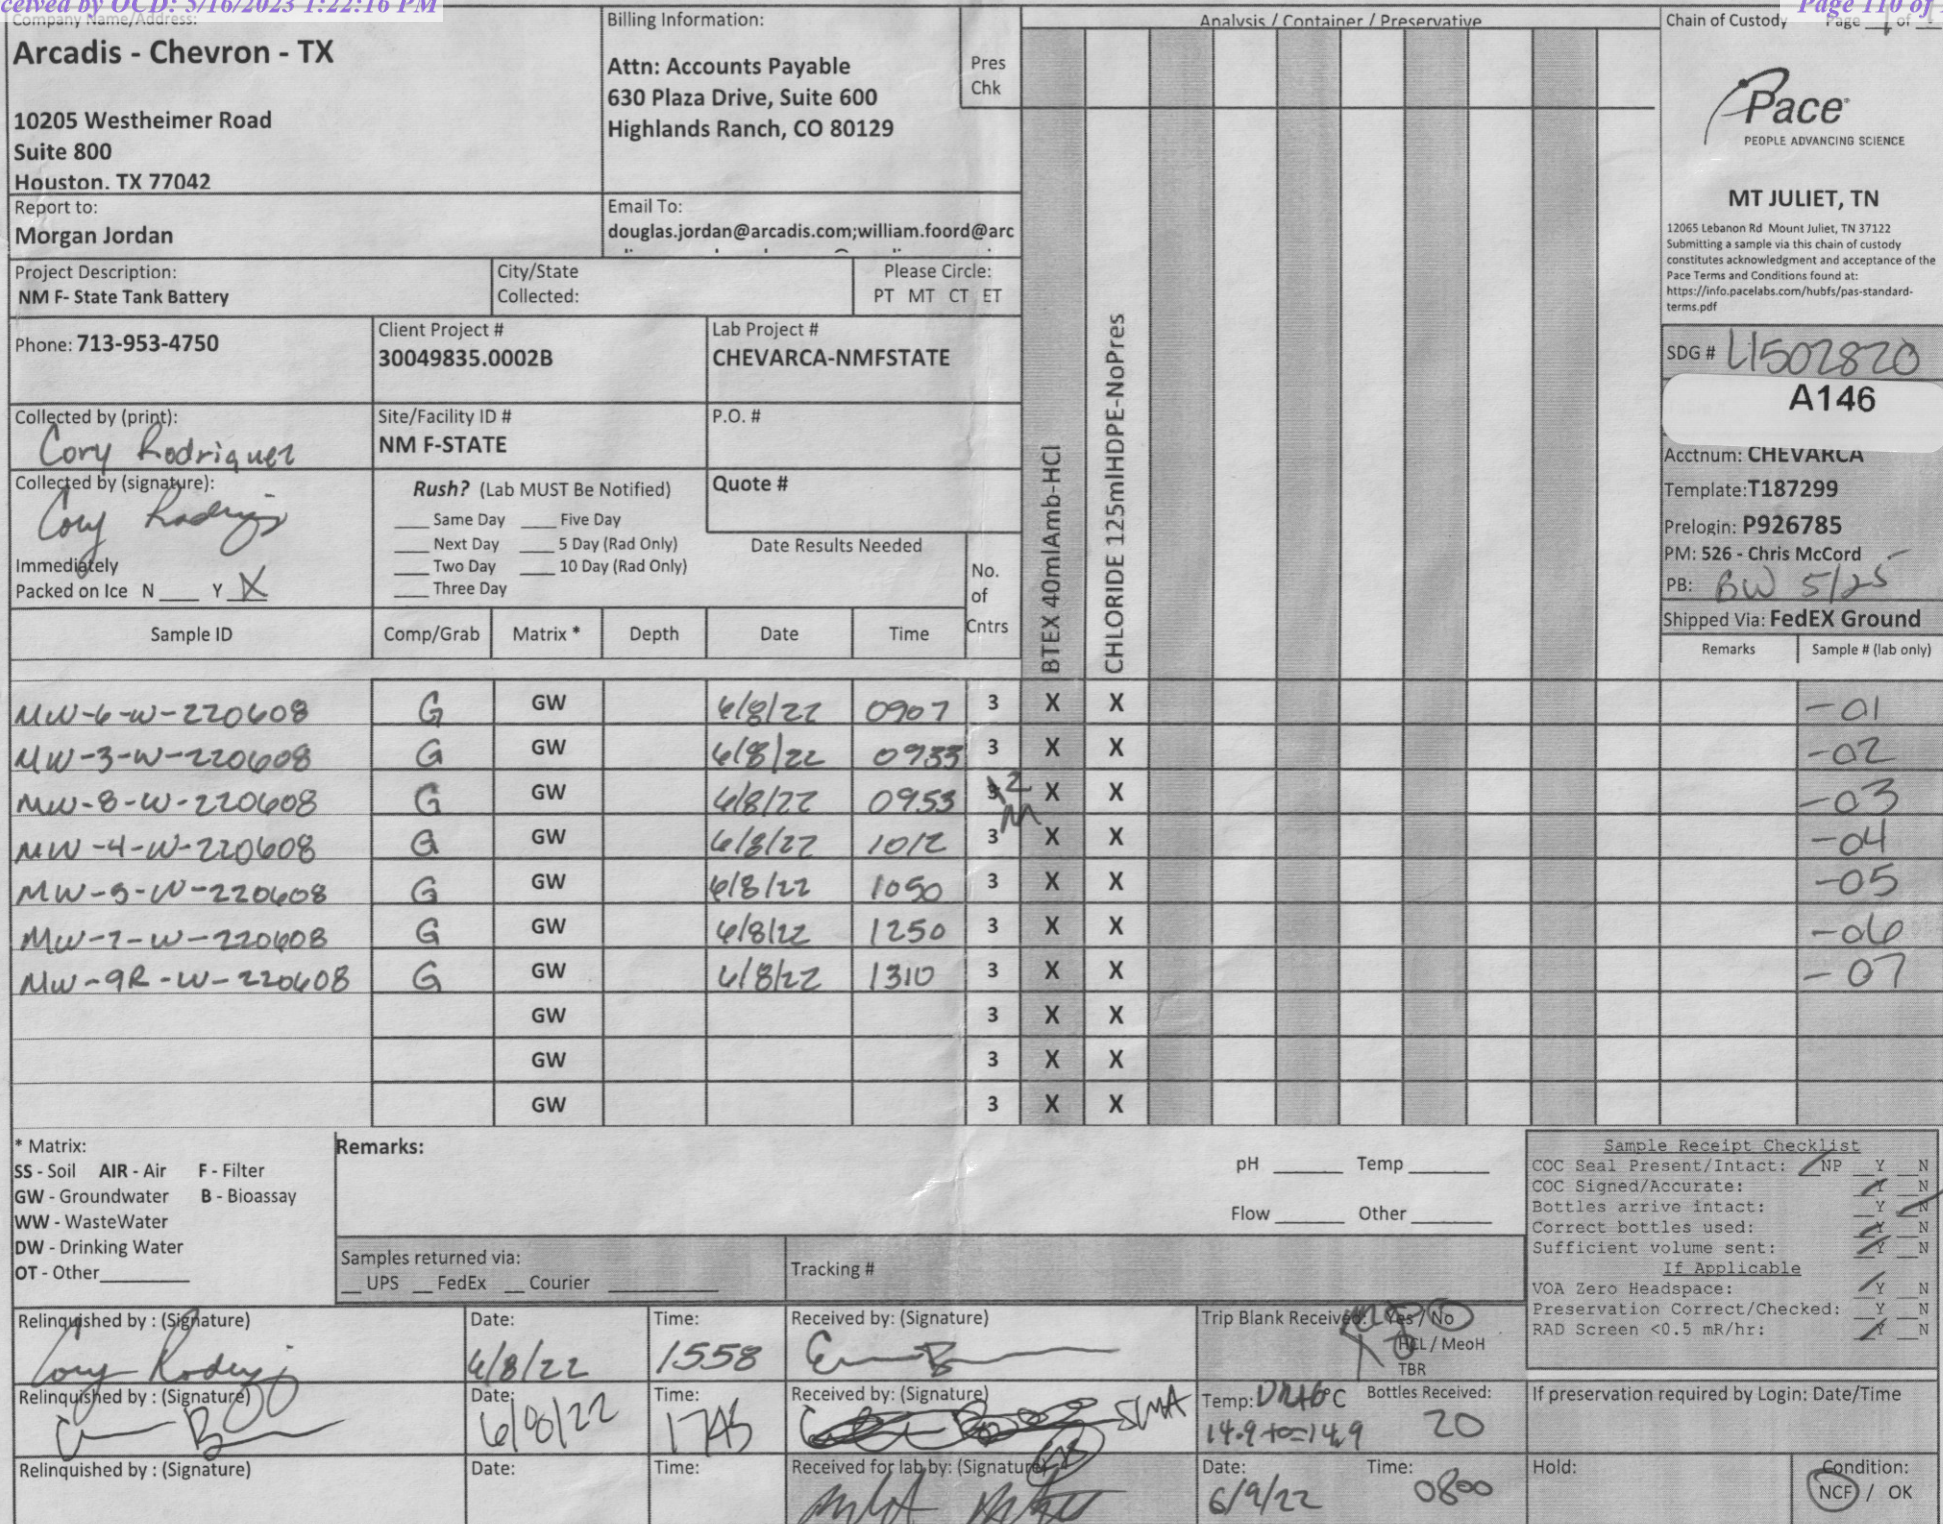 ceived by OCD: 5/16/2023 1:22:16 PM
Page 110 of
Company Name/Address:
Arcadis - Chevron - TX
10205 Westheimer Road
Suite 800
Houston, TX 77042
Billing Information:
Attn: Accounts Payable
630 Plaza Drive, Suite 600
Highlands Ranch, CO 80129
Pres
Chk
Analysis / Container / Preservative
Chain of Custody Page 1 of
Pace
PEOPLE ADVANCING SCIENCE
MT JULIET, TN
12065 Lebanon Rd Mount Juliet, TN 37122
Submitting a sample via this chain of custody
constitutes acknowledgment and acceptance of the
Pace Terms and Conditions found at:
https://info.pacelabs.com/hubfs/pas-standard-
terms.pdf
Report to:
Morgan Jordan
Email To:
douglas.jordan@arcadis.com;william.foord@arc
Project Description:
NM F- State Tank Battery
City/State
Collected:
Please Circle:
PT MT CT ET
Phone: 713-953-4750
Client Project #
30049835.0002B
Lab Project #
CHEVARCA-NMFSTATE
SDG # L1502820
A146
Acctnum: CHEVARCA
Template: T187299
Prelogin: P926785
PM: 526 - Chris McCord
PB: BW 5/25
Shipped Via: FedEX Ground
Collected by (print):
Cory Rodriguez
Site/Facility ID #
NM F-STATE
P.O. #
Collected by (signature):
Cory Rodriguez
Immediately
Packed on Ice N ___ Y X
Rush? (Lab MUST Be Notified)
___ Same Day ___ Five Day
___ Next Day ___ 5 Day (Rad Only)
___ Two Day ___ 10 Day (Rad Only)
___ Three Day
Quote #
Date Results Needed
No.
of
Cntrs
BTEX 40mlAmb-HCl
CHLORIDE 125mlHDPE-NoPres
Sample ID Comp/Grab Matrix * Depth Date Time Remarks Sample # (lab only)
MW-6-W-220608 G GW 6/8/22 0907 3 X X -01
MW-3-W-220608 G GW 6/8/22 0933 3 X X -02
MW-8-W-220608 G GW 6/8/22 0953 3 2 X X -03
MW-4-W-220608 G GW 6/8/22 1012 3 X X -04
MW-5-W-220608 G GW 6/8/22 1050 3 X X -05
MW-7-W-220608 G GW 6/8/22 1250 3 X X -06
MW-9R-W-220608 G GW 6/8/22 1310 3 X X -07
GW 3 X X
GW 3 X X
GW 3 X X
* Matrix:
SS - Soil AIR - Air F - Filter
GW - Groundwater B - Bioassay
WW - WasteWater
DW - Drinking Water
OT - Other
Remarks:
pH ___ Temp ___
Flow ___ Other ___
Samples returned via:
__ UPS __ FedEx __ Courier
Tracking #
Sample Receipt Checklist
COC Seal Present/Intact: NP Y N
COC Signed/Accurate: Y N
Bottles arrive intact: Y N
Correct bottles used: Y N
Sufficient volume sent: Y N
If Applicable
VOA Zero Headspace: Y N
Preservation Correct/Checked: Y N
RAD Screen <0.5 mR/hr: Y N
Relinquished by : (Signature)
Cory Rodriguez
Date:
6/8/22
Time:
1558
Received by: (Signature)
Trip Blank Received: Yes / No
HCL / MeoH
TBR
Relinquished by : (Signature)
Date:
6/8/22
Time:
1745
Received by: (Signature)
Temp: °C
14.9+0=14.9
Bottles Received:
20
If preservation required by Login: Date/Time
Relinquished by : (Signature)
Date:
Time:
Received for lab by: (Signature)
Date:
6/9/22
Time:
0800
Hold:
Condition:
NCF / OK